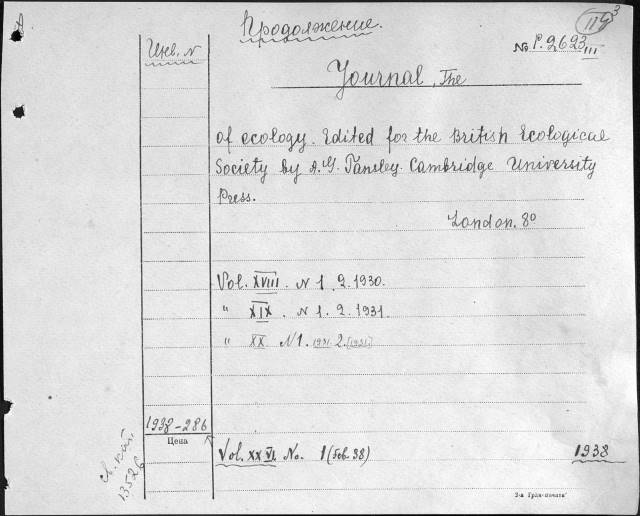 Продолжение.
Инв. N
№ P.2623 III
Journal, The
of ecology. Edited for the British Ecological
Society by A. G. Tansley. Cambridge University
Press.
London. 8°
Vol. XVIII. N 1. 2. 1930.
" XIX. N 1. 2. 1931.
" XX N1. 1931 2. (1931)
1938-286
Цена
Vol. XXVI. No. 1 (Feb. 38) 1938
13526